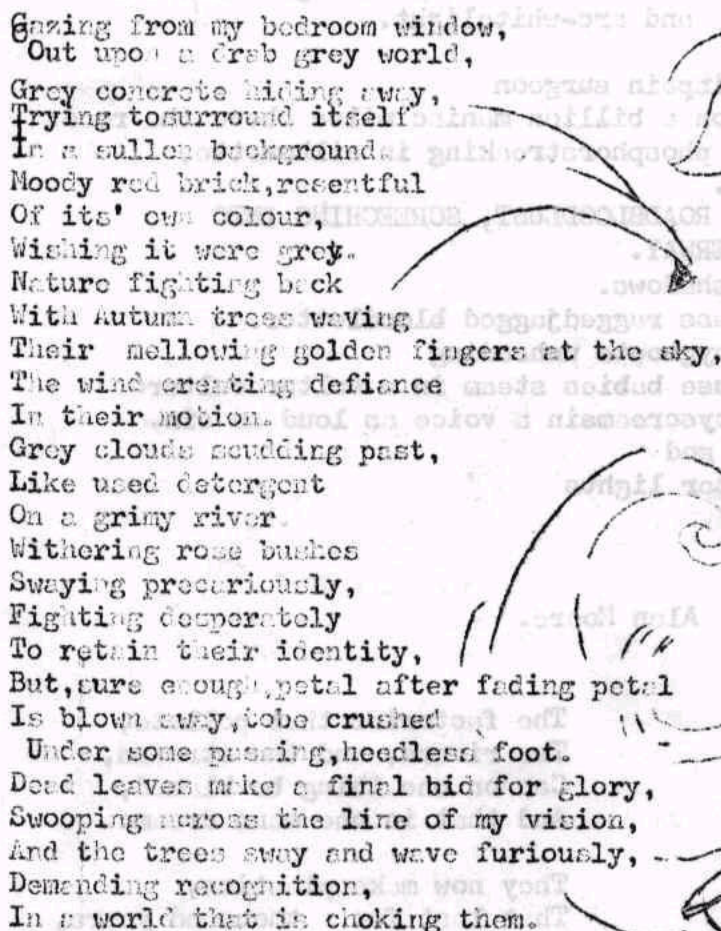 Gazing from my bedroom window,
Out upon a drab grey world,
Grey concrete hiding away,
Trying tosurround itself
In a sullen background.
Moody red brick,resentful
Of its' own colour,
Wishing it were grey.
Nature fighting back
With Autumn trees waving
Their mellowing golden fingers at the sky,
The wind creating defiance
In their motion.
Grey clouds scudding past,
Like used detergent
On a grimy river.
Withering rose bushes
Swaying precariously,
Fighting desperately
To retain their identity,
But,sure enough,petal after fading petal
Is blown away,tobe crushed
Under some passing,heedless foot.
Dead leaves make a final bid for glory,
Swooping across the line of my vision,
And the trees sway and wave furiously,
Demanding recognition,
In a world that is choking them.